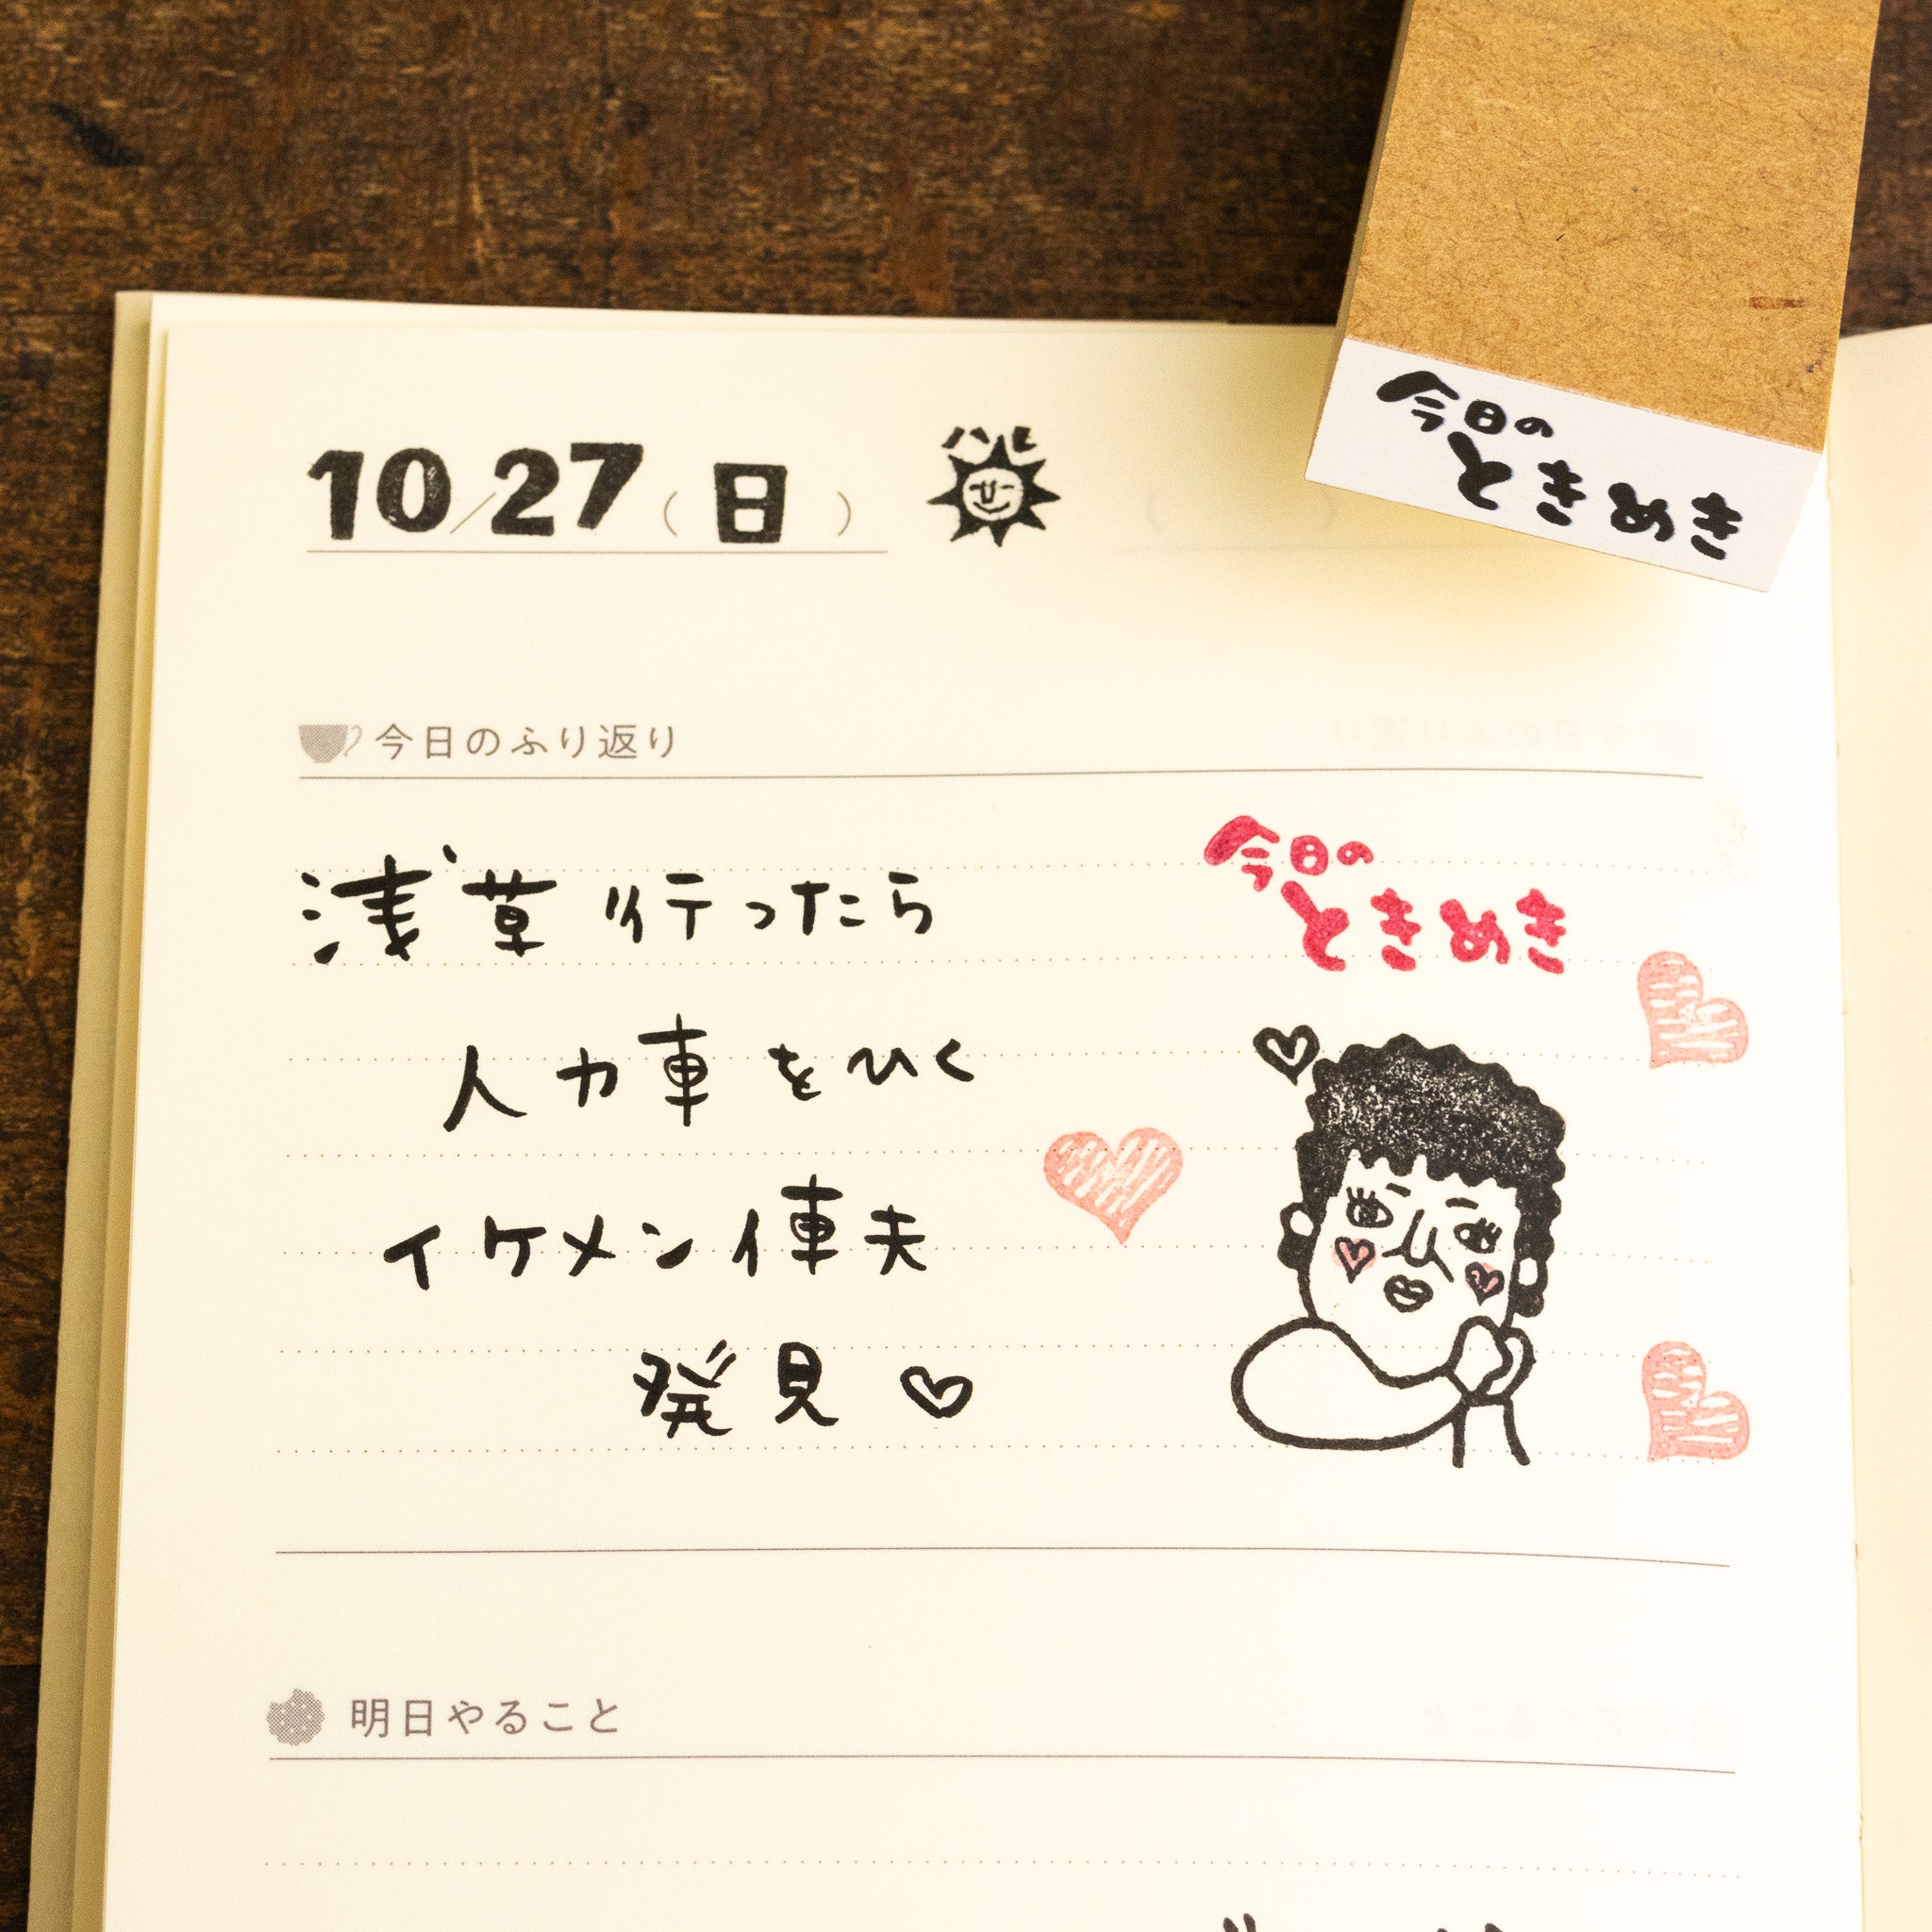 今日の
ときめき
10/27(日)
ハレ
今日のふり返り
浅草行ったら
人力車をひく
イケメン俥夫
発見♡
今日の
ときめき
明日やること